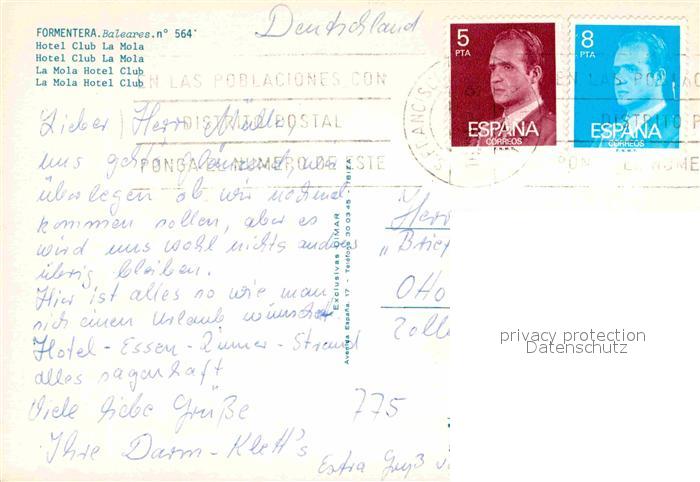 Deutschland
FORMENTERA. Baleares. n° 564
Hotel Club La Mola
Hotel Club La Mola
La Mola Hotel Club
La Mola Hotel Club
5 PTA
ESPAÑA
CORREOS
F.N.M.T.
8 PTA
ESPAÑA
CORREOS
F.N.M.T.
EN LAS POBLACIONES CON
DISTRITO POSTAL
PONGA EL NUMERO DE ESTE
EN LAS POBLA
DISTRITO P
PON EL NUME
Lieber Herr Müller,
uns geht glänzend, wir
überlegen ob wir nochmal
kommen sollen, aber es
wird uns wohl nichts anderes
übrig bleiben.
Hier ist alles so wie man
sich einen Urlaub wünscht
Hotel - Essen - Zimmer - Strand
alles sagenhaft
Viele liebe Grüße
Ihre Darm - Klett's
775
Extra Gruß
Exclusivas DIMAR
Avenida España, 17 - Teléfono 30 03 45 - IBIZA
Herr
„Brief
Otto
Zoll
privacy protection
Datenschutz